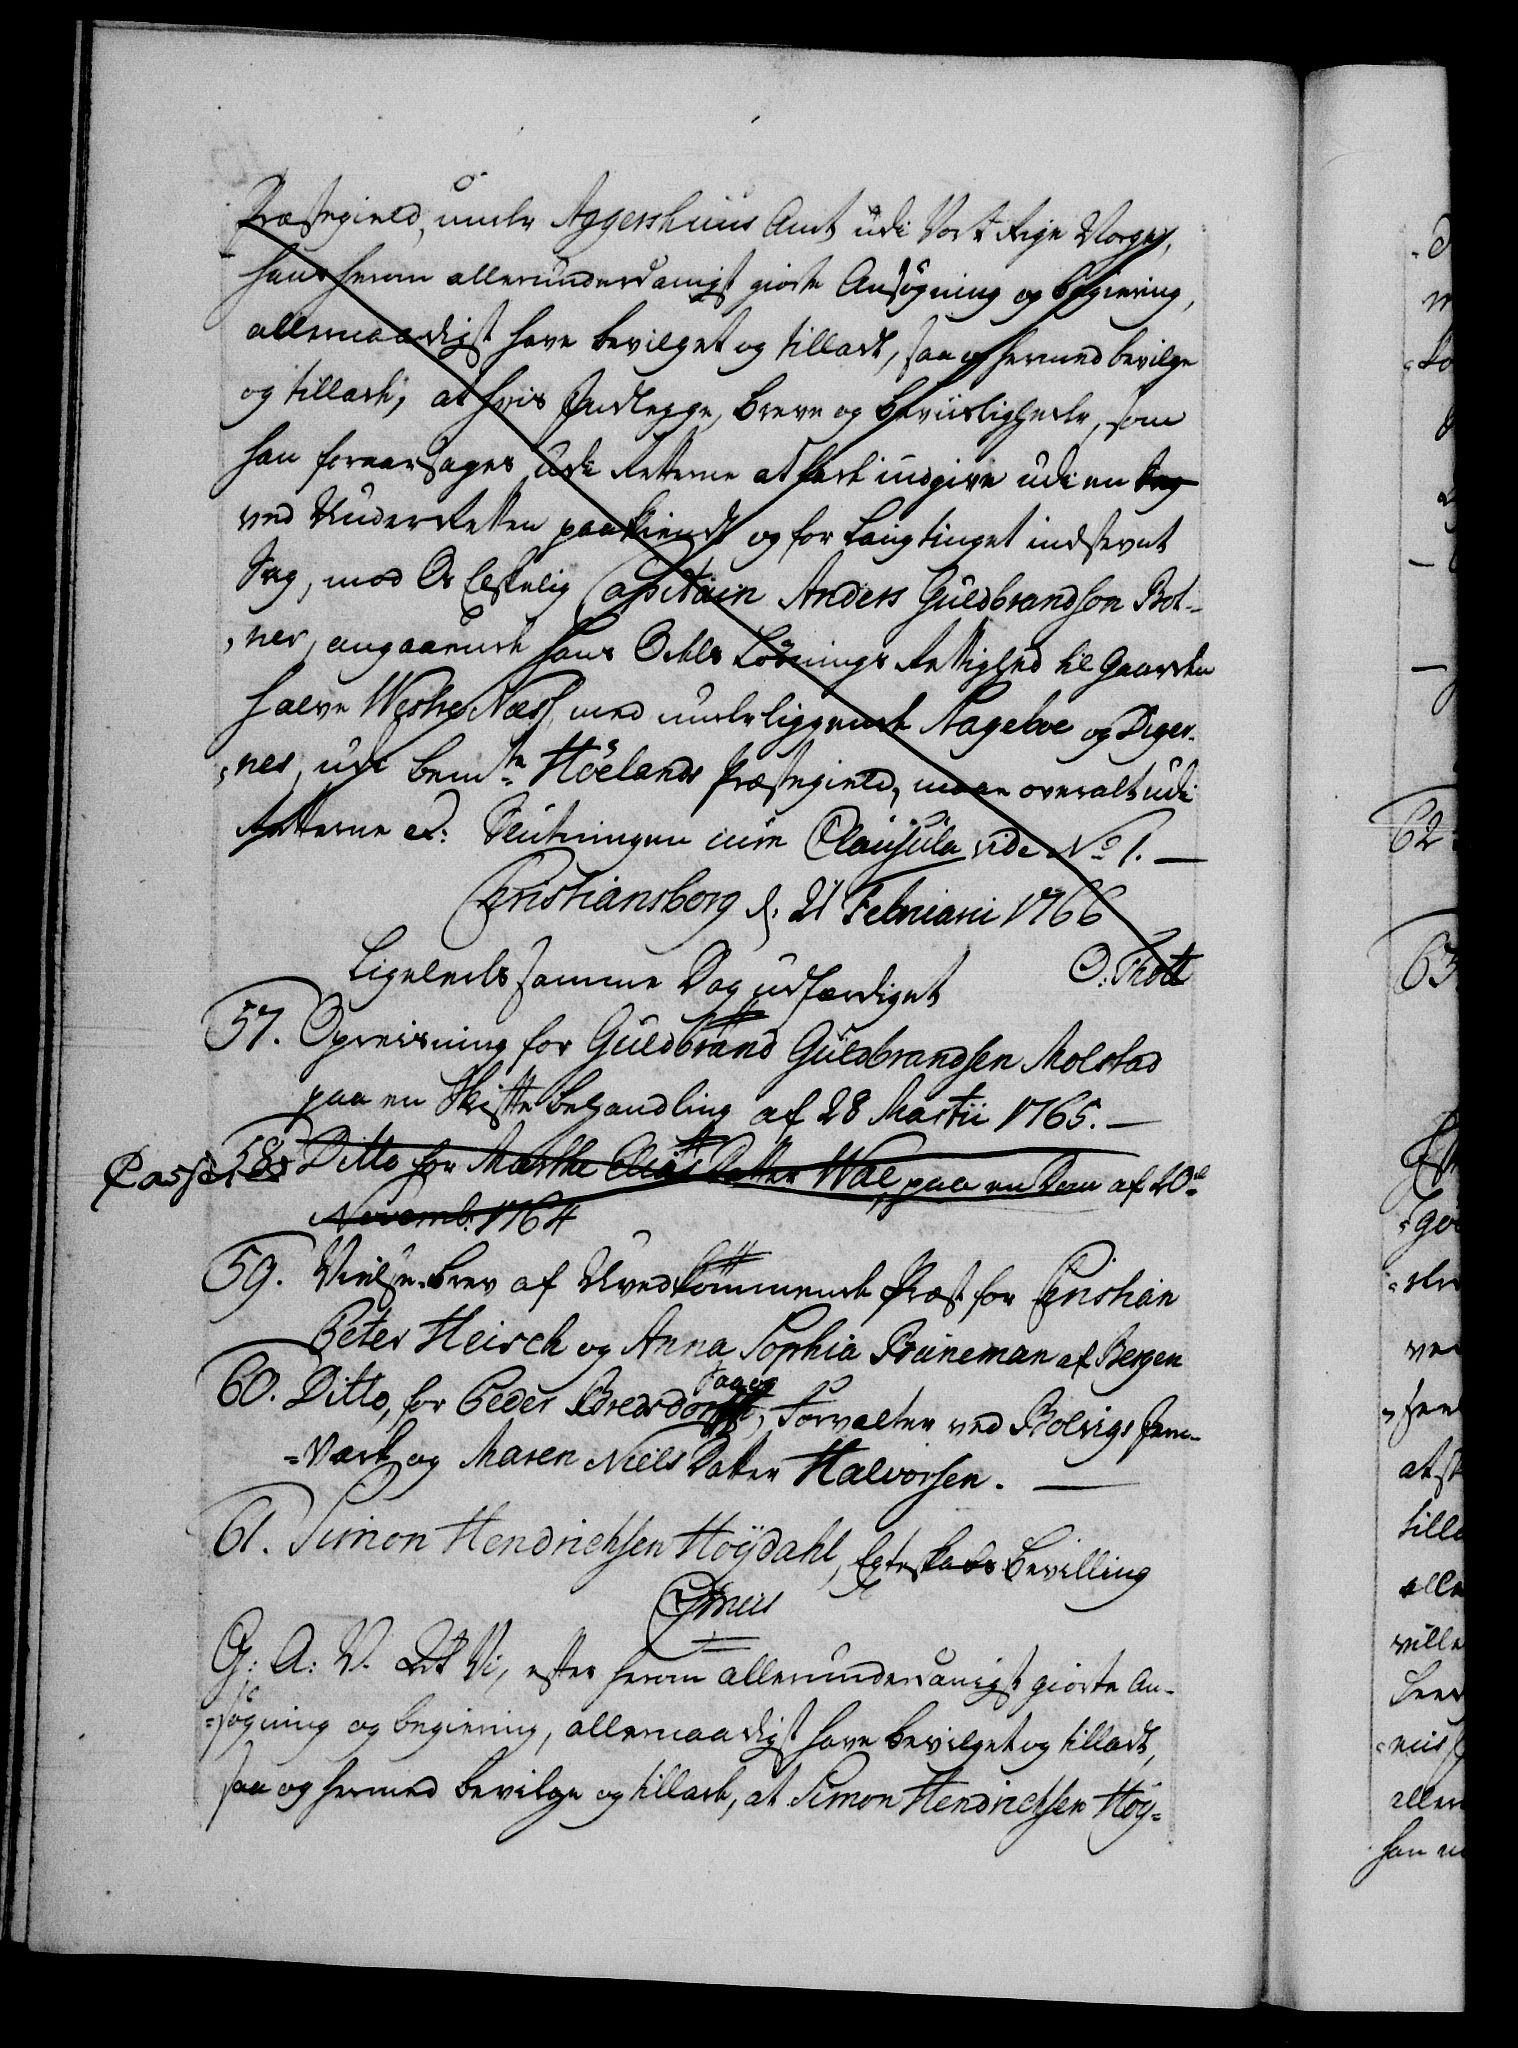 Præstegield, under Aggershuus Amt udi Vort Rige Norge,
hans herom allerunderdanigst giorte Ansøgning og begiering,
allernaadigst have bevilget og tilladt, saa og hermed bevilge
og tillade, at hvis Indlegge, Breve og Beviisligheder, som
han foraarsages udi Retterne at lade indgive udi en Sag
ved UnderRetten paakiendt og for Laugtinget indstevnt
Sag, mod Os Elskelig Capitain Anders Guldbrandson Bol-
-ner, angaaende hans Odels Løsnings Rettighed til Gaarden
halve Westre Næss, med underliggende Nageløe og Diger-
-nes, udi bemte Hölands Præstegield, maae overalt udi
Retterne etc: Slutningen cum Clausula vide No 1. —
Christiansborg d. 21 Februarii 1766
O. Thott
Ligeledes samme Dag udfærdiget
57. Opreisning for Guldbrand Guldbrandsen Molstad
paa en Skiftebehandling af 28 Martii 1765. —
Casseres 58. Ditto for Marthe Elias Datter Wal, paa en Dom af 20de
Novemb: 1764
59. Vielse-brev af Uvedkommende Præst for Christian
Peter Heirch og Anna Sophia Bruneman af Bergen
60. Ditto, for Peder Bredsdorff, Forvalter ved Bolvigs Jern-
=Værk og Maren Niels Datter Halvorsen. —
61. Simon Hendrichsen Höydahl, Egteskabs Bevilling
G: A: V. At Vi, efter herom allerunderdanigst giorte An-
=søgning og begiering, allernaadigst have bevilget og tilladt,
saa og hermed bevilge og tillade, at Simon Hendrichsen Höy=